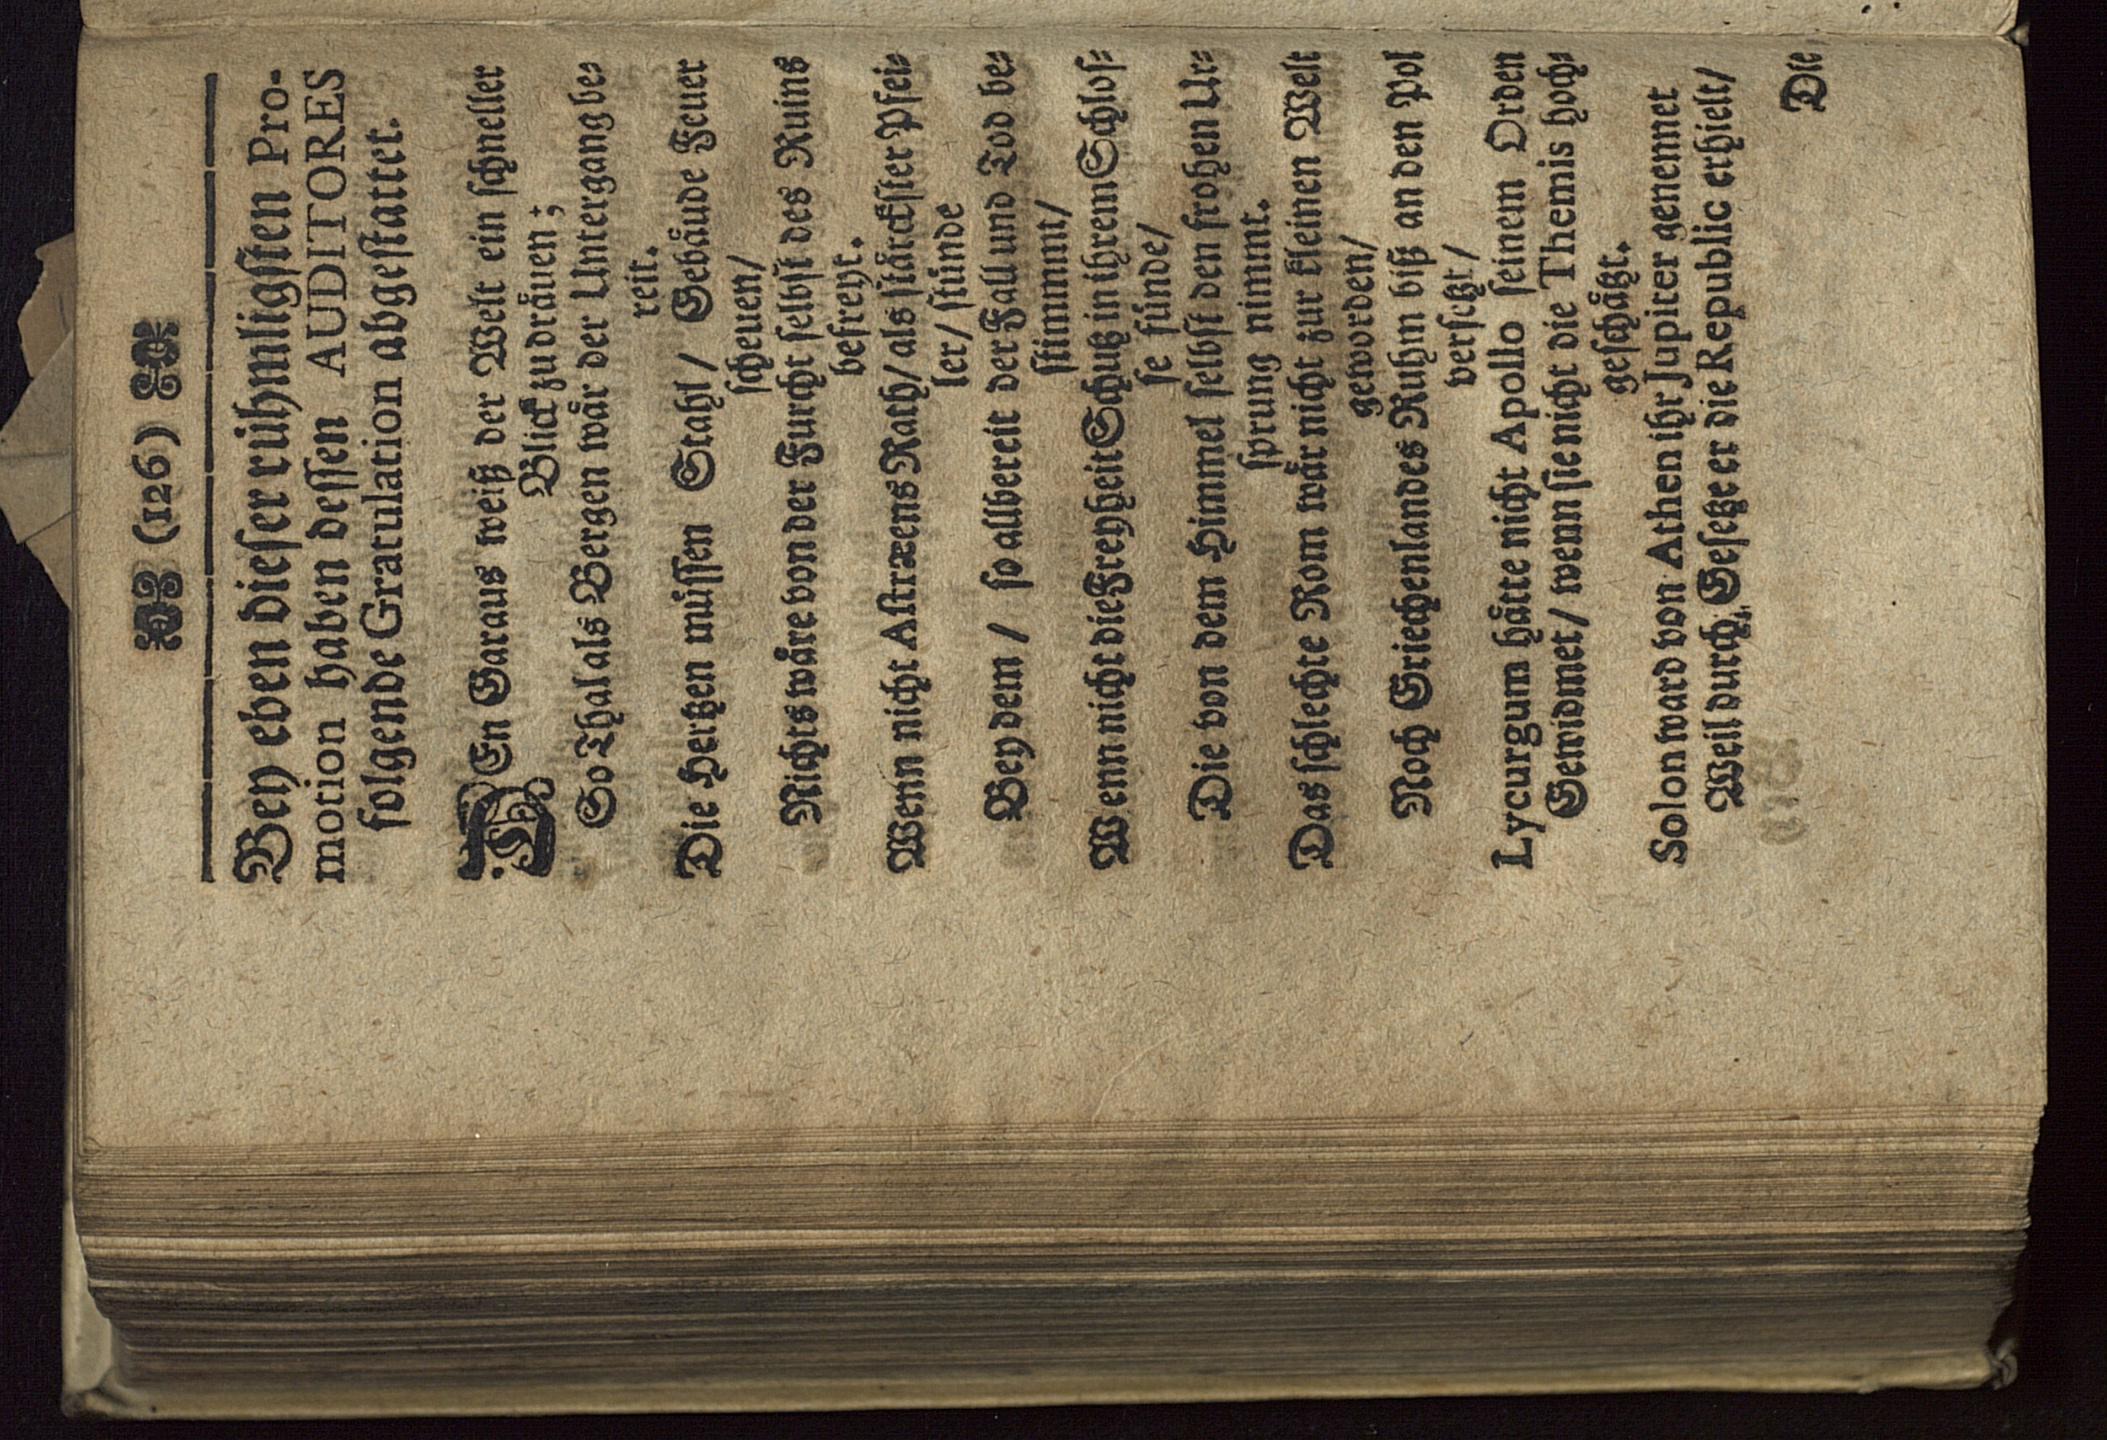 (126)
Bey eben dieser rühmligsten Pro-
motion haben dessen AUDITORES
folgende Gratulation abgestattet.
DEn Garaus weiß der Welt ein schneller
Blick zu dräuen;
So Thal als Bergen wär der Untergang be-
reit.
Die Hertzen müssen Stahl / Gebäude Feuer
scheuen/
Nichts wäre von der Furcht selbst des Ruins
befreyt.
Wenn nicht Astræens Rath/ als stärckster Pfei-
ler/ stünde
Bey dem / so allbereit der Fall und Tod be-
stimmt/
Wenn nicht die Freyheit Schutz in ihrem Schlos-
se fünde/
Die von dem Himmel selbst den frohen Ur-
sprung nimmt.
Das schlechte Rom wär nicht zur kleinen Welt
geworden/
Noch Griechenlandes Ruhm biß an den Pol
versetzt/
Lycurgum hätte nicht Apollo seinem Orden
Gewidmet/ wenn sie nicht die Themis hoch-
geschätzt.
Solon ward von Athen ihr Jupiter genennet
Weil durch Gesetze er die Republic erhielt/
Die